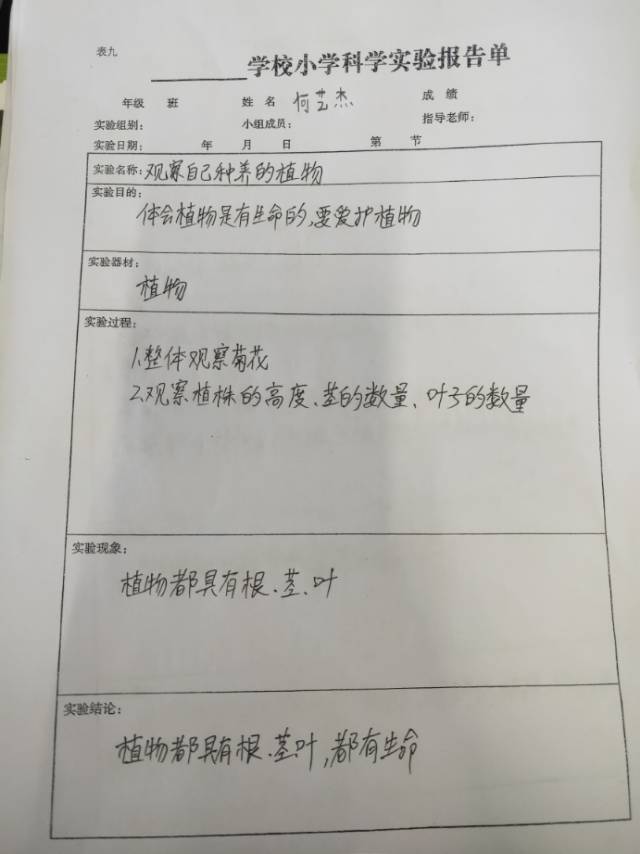 表九
学校小学科学实验报告单
年级 班 姓名 何艺杰 成绩
实验组别: 小组成员: 指导老师:
实验日期: 年 月 日 第 节
实验名称: 观察自己种养的植物
实验目的:
体会植物是有生命的,要爱护植物
实验器材:
植物
实验过程:
1.整体观察菊花
2.观察植株的高度、茎的数量、叶子的数量
实验现象:
植物都具有根、茎、叶
实验结论:
植物都具有根、茎叶,都有生命